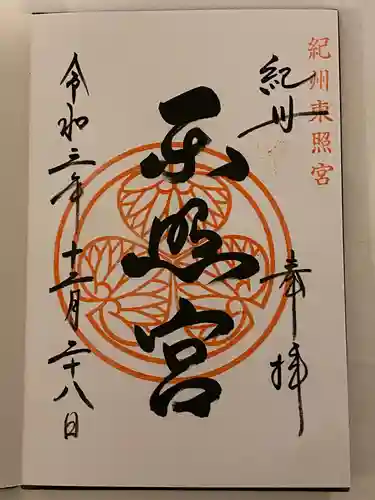 紀州東照宮
紀州
奉拝
東照宮
令和三年十二月二十八日